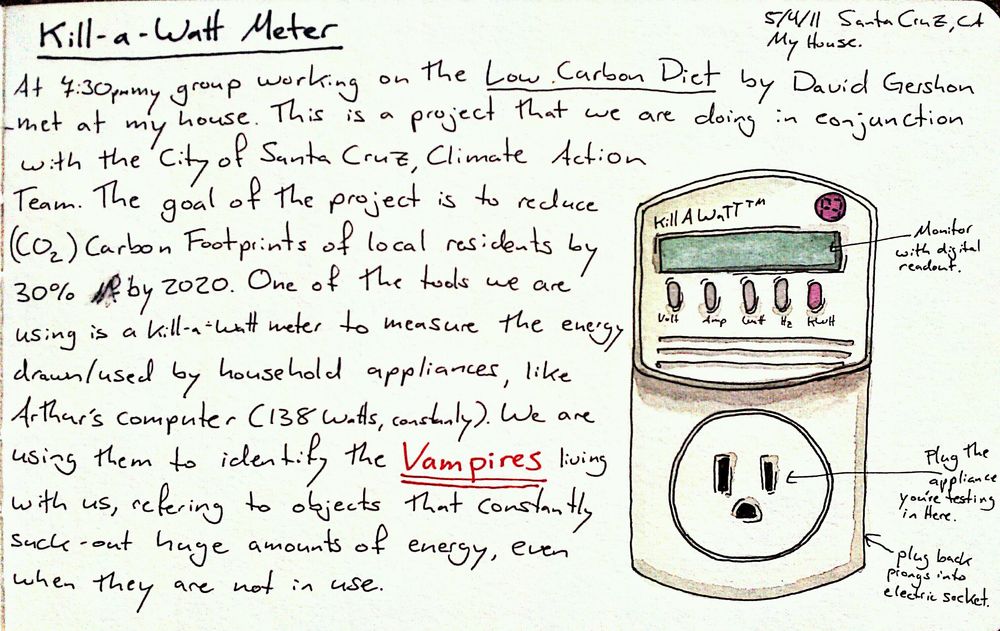 Kill-a-Watt Meter
5/4/11 Santa Cruz, CA
My House.
At 7:30pm my group working on the Low Carbon Diet by David Gershon
met at my house. This is a project that we are doing in conjunction
with the City of Santa Cruz, Climate Action
Team. The goal of the project is to reduce
(CO₂) Carbon Footprints of local residents by
30% by 2020. One of the tools we are
using is a Kill-a-Watt meter to measure the energy
drawn/used by household appliances, like
Arthur's computer (138 Watts, constanly). We are
using them to identify the Vampires living
with us, refering to objects that constantly
suck-out huge amounts of energy, even
when they are not in use.
Kill A WaTT™
Volt Amp Watt Hz KWH
Monitor
with digital
readout.
Plug the
appliance
you're testing
in Here.
plug back
prongs into
electric socket.